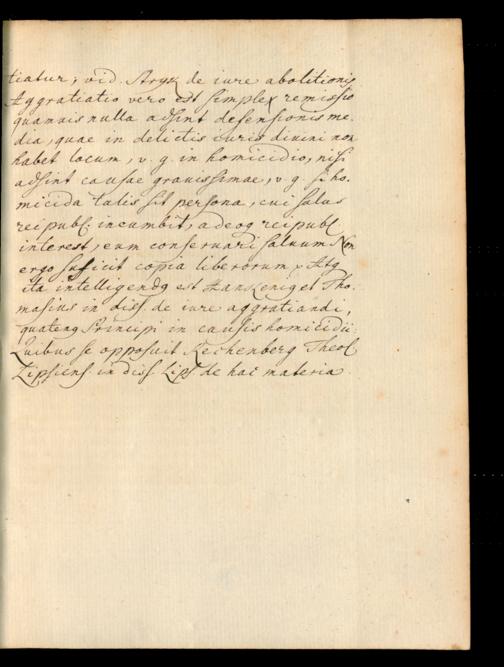 tiatur; vid. Stryk de iure abolitionis
Aggratiatio vero est simplex remissio
quamuis nulla adsint defensionis me-
dia, quae in delictis iuris divini non
habet locum, v. g. in homicidio, nisi
adsint causae gravissimae, v. g. si ho-
micida talis sit persona, cui salus
reipubl. incumbit, adeoq reipubl
interest, eum conseruari saluum Non
ergo suficit copia liberorum. Atq
ita intelligendq est et Tho-
masius in diss. de iure aggratiandi,
quatenq Principi in causis homicidii:
Quibus se opposuit Rechenberg Theol
Lipsiens. in diss. Lips de hac materia.